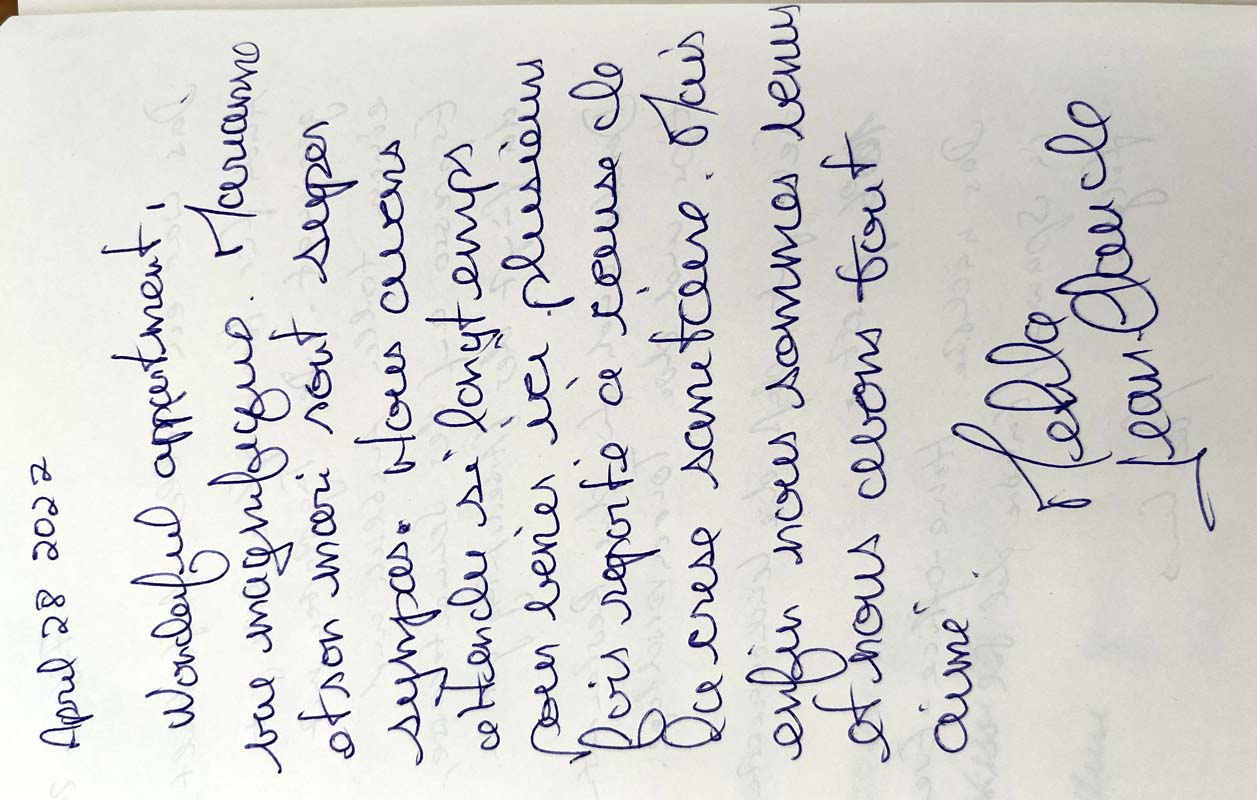 April 28 2022
Wonderful appartment,
vue magnifique. Marianne
et son mari sont super
sympas. Nous avons
attendu si longtemps
pour venir ici. plusieurs
fois reporté à cause de
la crise sanitaire. Mais
enfin nous sommes venus
et nous avons tout
aimé.
Jean Claude